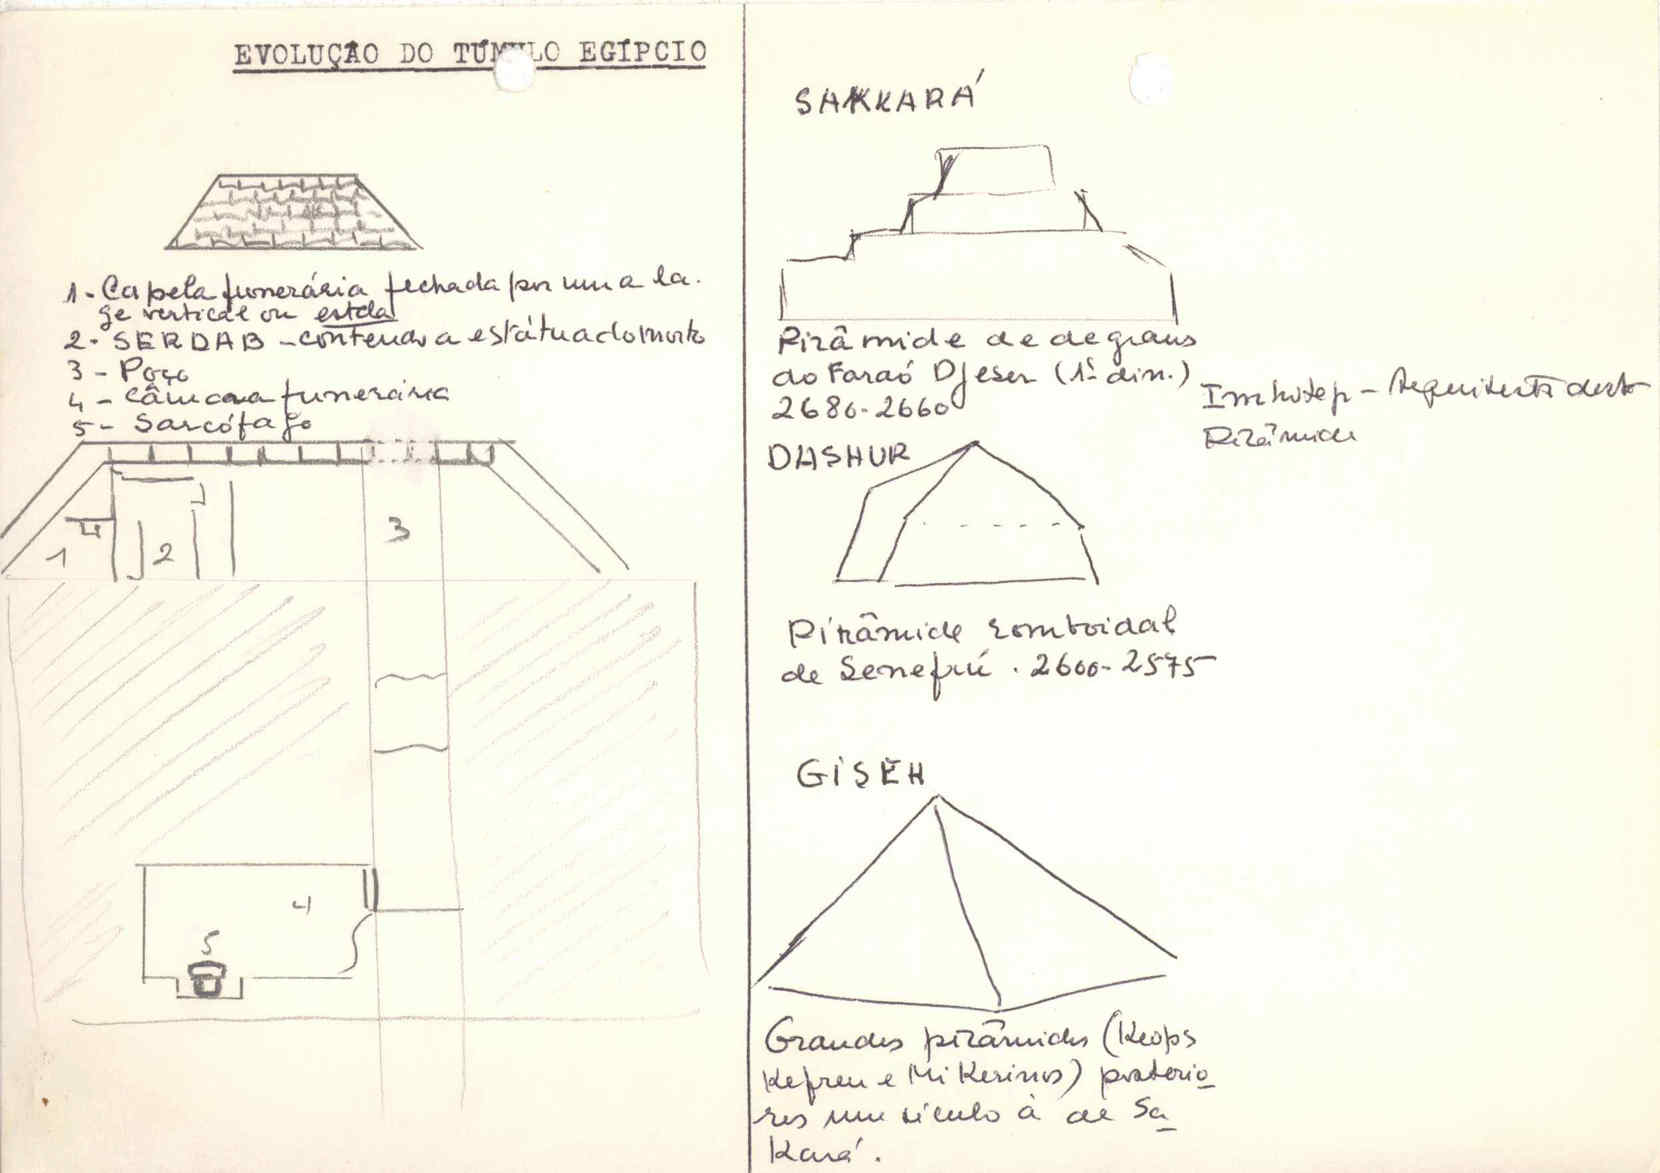 EVOLUÇÃO DO TÚMULO EGÍPCIO
1 - Capela funerária fechada por uma la-
ge vertical ou estela
2 - SERDAB - contendo a estátua do morto
3 - Poço
4 - Câmara funerária
5 - Sarcófago
3
1
2
4
5
SAKKARÁ
Pirâmide de degraus
do Faraó Djeser (1ª din.)
2680-2660
Imhotep - Arquitecto desta
Pirâmide
DASHUR
Pirâmide romboidal
de Senefrú . 2600-2575
GISEH
Grandes pirâmides (Keops
Kefren e Mikerinos) posterio
res um século à de Sa
Kará.